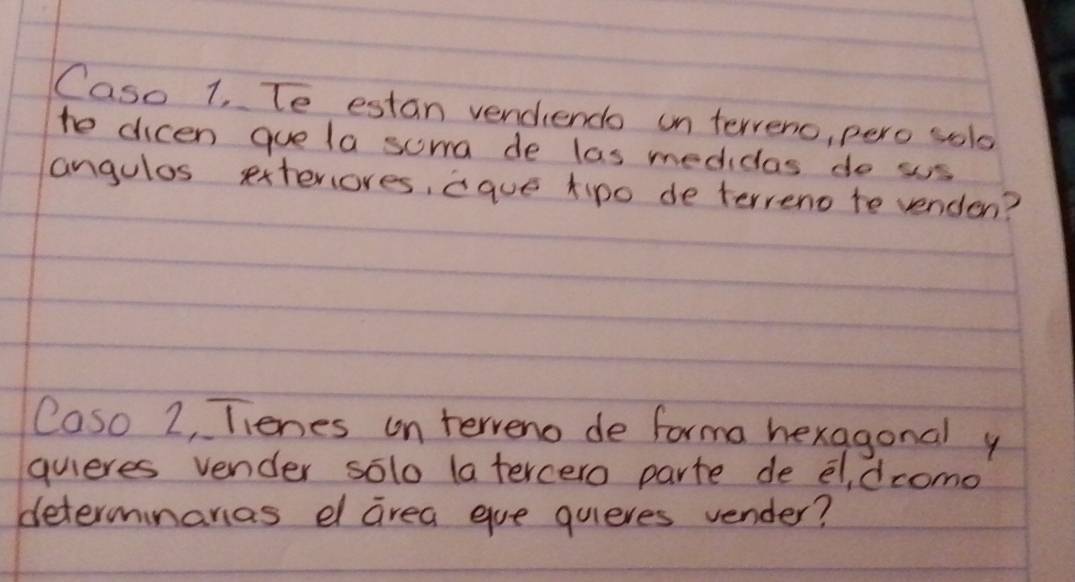 Caso 1. Te estan vendiendo un terreno, pero solo
te dicen que la suma de las medidas de sus
angulos exteriores, ¿que tipo de terreno te venden?
Caso 2. Tienes un terreno de forma hexagonal y
quieres vender sólo la tercera parte de él, ¿como
determinarias el área que quieres vender?